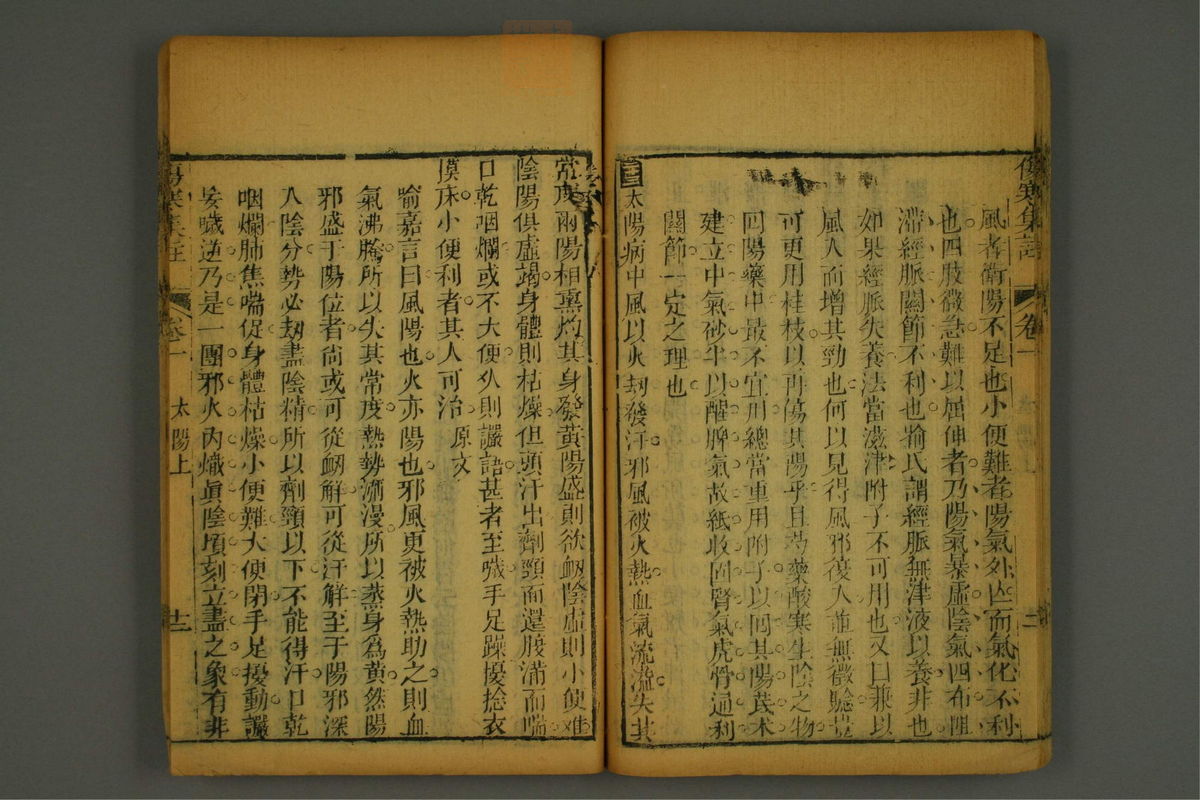 傷寒集註 卷一
風者衛陽不足也小便難者陽氣外亡而氣化不利
也四肢微急難以屈伸者乃陽氣暴虛陰氣四布阻
滯經脈關節不利也喻氏謂經脈無津液以養非也
如果經脈失養法當滋津附子不可用也又曰兼以
風入而增其勁也何以見得風邪復入並無微驗豈
可更用桂枝以再傷其陽乎且芍藥酸寒生陰之物
回陽藥中最不宜用總當重用附子以回其陽芪朮
建立中氣砂半以醒脾氣故紙收回腎氣虎骨通利
關節一定之理也
太陽病中風以火刼發汗邪風被火熱血氣流溢失其
常度兩陽相熏灼其身發黃陽盛則欲衂陰虛則小便難
陰陽俱虛竭身體則枯燥但頭汗出劑頸而還腹滿而喘
口乾咽爛或不大便久則讝語甚者至噦手足躁擾捻衣
摸床小便利者其人可治 原文
喻嘉言曰風陽也火亦陽也邪風更被火熱助之則血
氣沸騰所以失其常度熱勢瀰漫所以蒸身為黃然陽
邪盛于陽位者尚或可從衂解可從汗解至于陽邪深
入陰分勢必刼盡陰精所以劑頸以下不能得汗口乾
咽爛肺焦喘促身體枯燥小便難大便閉手足擾動讝
妄噦逆乃是一團邪火內熾真陰頃刻立盡之象有非
傷寒集註 卷一 太陽上 十二